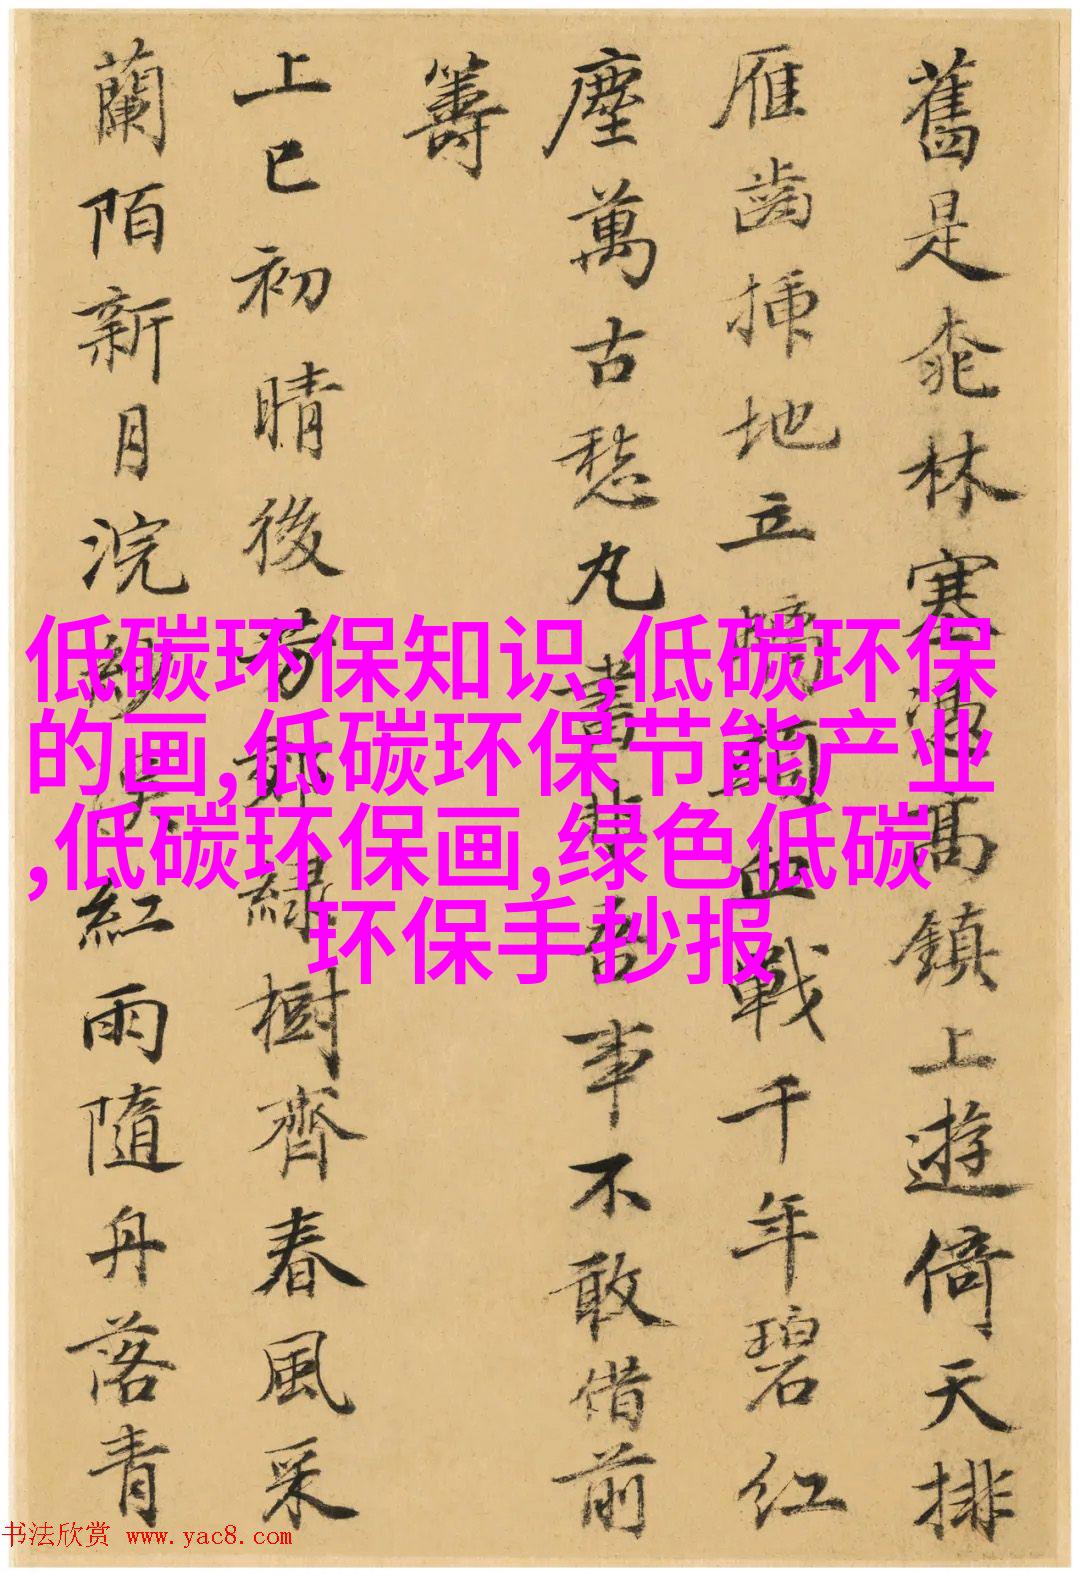 舊是桃林塞潼高鎮上遊倚天排
雁齒插地立螭頭血戰千年碧紅
塵萬古愁丸書非吾事不敢借前
籌
上巳初晴後芳郊綠樹齊春風采
蘭陌新月浣紗溪紅雨隨舟落青
低碳环保知识,低碳环保
的画,低碳环保节能产业
,低碳环保画,绿色低碳
环保手抄报
书法欣赏 www.yac8.com